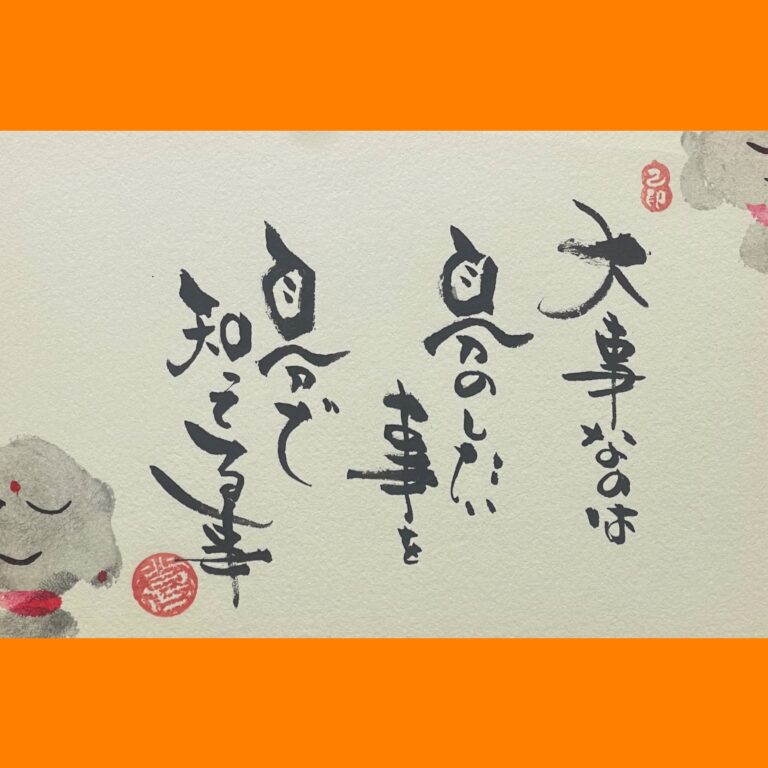 大事なのは
自分のしたい
事を
自分で
知ってる事